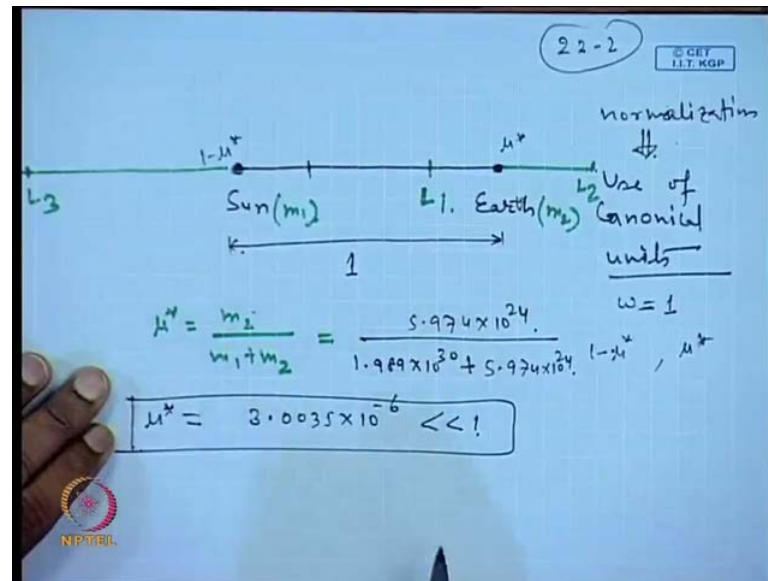 22-2
© CET
I.I.T. KGP
normalization
⇓
Use of
Canonical
units
ω = 1
1-μ* , μ*
1-μ* μ*
L3 Sun(m₁) L1. Earth(m₂) L2
1
μ* = m₂ / (m₁+m₂) = 5.974×10²⁴. / (1.989×10³⁰ + 5.974×10²⁴.)
μ* = 3.0035×10⁻⁶ << 1
NPTEL